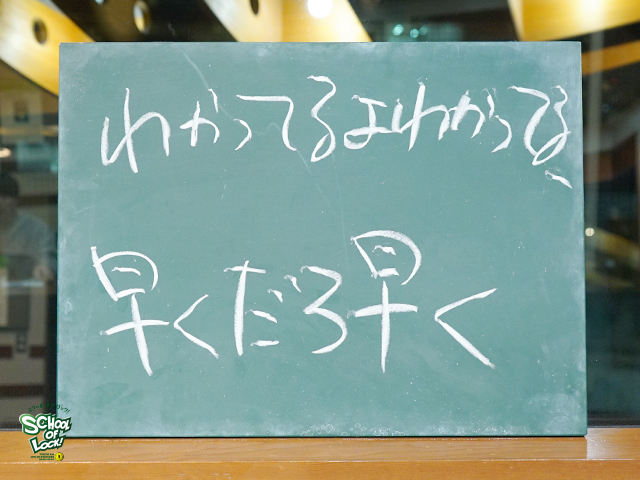 わかってるよわかってる、
早くだろ早く
SCHOOL
OF
LOCK!